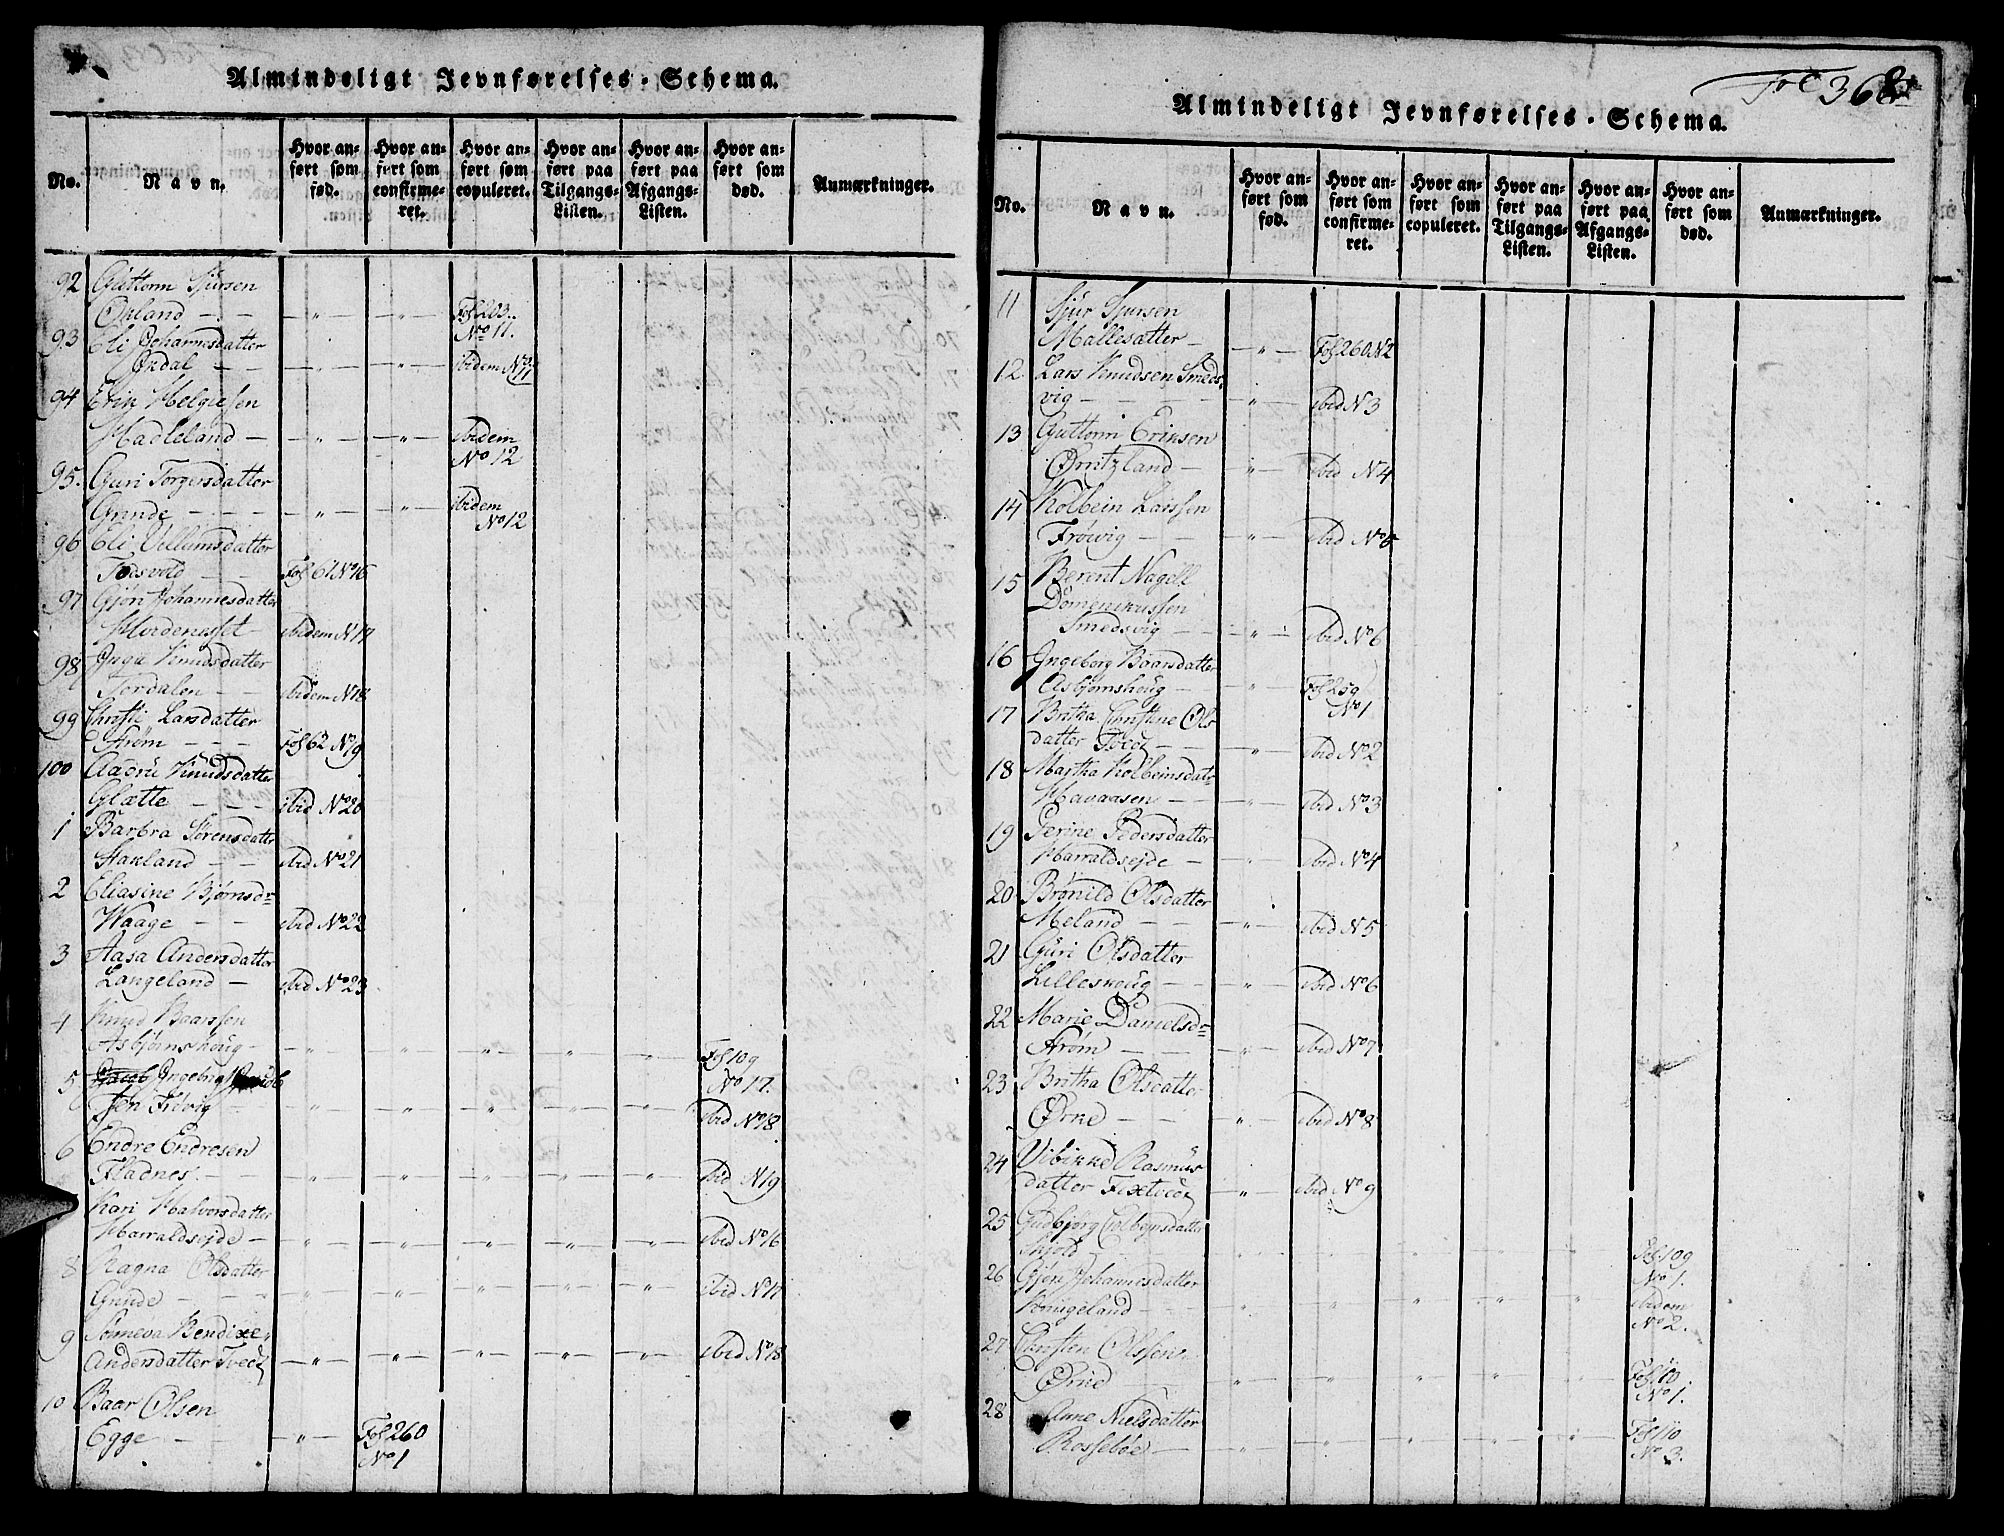 Almindeligt Jevnførelses-Schema.
No.
Navn.
Hvor anført som fød.
Hvor anført som confirmeret.
Hvor anført som copuleret.
Hvor anført paa Tilgangs-Listen.
Hvor anført paa Afgangs-Listen.
Hvor anført som død.
Anmærkninger.
92 Guttorm Sjursen
Opland - " - " - Fol 203.
No 11.
93 Eli Johannesdatter
Ondal - " - " - ibidem No 11
94 Erik Helgesen
Hadleland - " - " - ibidem
No 12
95. Guri Torgersdatter
Grinde - " - " - ibidem
No 12
96 Eli Villumsdatter
Fol 61 No 16
97 Gjøri Johannesdatter
ibidem N 17
98 Inga Knudsdatter
Tordalen - ibidem N 18
99 Christi Larsdatter
Strøm - Fol 62 No 19
100 Knudsdatter
Glette - ibid No 20
1 Barbra Sørensdatter
Stakland - ibid No 21
2 Eliasine Bjørnsdr
Waage - ibid No 22
3 Aasa Andersdatter
Langeland - ibid No 23
4 Knud Baarsen
Asbjørnshoug - " - " - " - " - " - Fol 109
No 17.
5 Ingebrigt
" - " - " - " - " - ibid No 18
6 Endre Endresen
Fladnes. - " - " - " - " - " - ibid N 19
Kari Halvorsdatter
Harraldsejde - " - " - " - " - " - ibid No 16
8 Ragna Olsdatter
Grinde - " - " - " - " - " - ibid No 17
9 Bendixe
Andersdatter Tvedt - " - " - " - " - " - ibid No 18
10 Baar Olsen
Egge - " - Fol 260
No 1
Fol 368
Almindeligt Jevnførelses-Schema.
No.
Navn.
Hvor anført som fød.
Hvor anført som confirmeret.
Hvor anført som copuleret.
Hvor anført paa Tilgangs-Listen.
Hvor anført paa Afgangs-Listen.
Hvor anført som død.
Anmærkninger.
11 Sjur Sjursen
Mallesætter - " - Fol 260 N 2
12 Lars Knudsen Smeds
vig - " - ibid N 3
13 Guttorm Eriksen
Ørritzland - " - ibid N 4
14 Kolbein Larssen
Frøvig - " - ibid No 5
15 Berent Nagell
Domenikussen
Smedsvig - " - ibid No 6
16 Ingeborg Baarsdatter
Asbjørnshoug - " - Fol 259
No 1
17 Britha Christine Ols
datter Tvedt - " - ibid No 2
18 Martha Kolbeinsdatr
Havaasen - " - ibid No 3
19 Perine Pedersdatter
Harraldsejde - " - ibid No 4
20 Brønild Olsdatter
Meland - " - ibid N 5
21 Guri Olsdatter
Lilleskoug - " - ibid No 6
22 Marie Danielsdr
Strøm - " - ibid No 7
23 Britha Olsdatter
Ørke - " - ibid No 8
24 Vibikke Rasmus
datter Fixtvedt - " - ibid No 9
25 Gudbjørg Colbeinsdatter
Skjold - " - " - " - " - " - Fol 109
No 1.
26 Gjøri Johannesdatter
- " - " - " - " - " - ibidem
No 2.
27 Christen Olssen
Ørke - " - " - " - " - " - Fol 110.
No 1.
28 Anne Nielsdatter
Rossebøe - " - " - " - " - " - Fol 110
No 3.